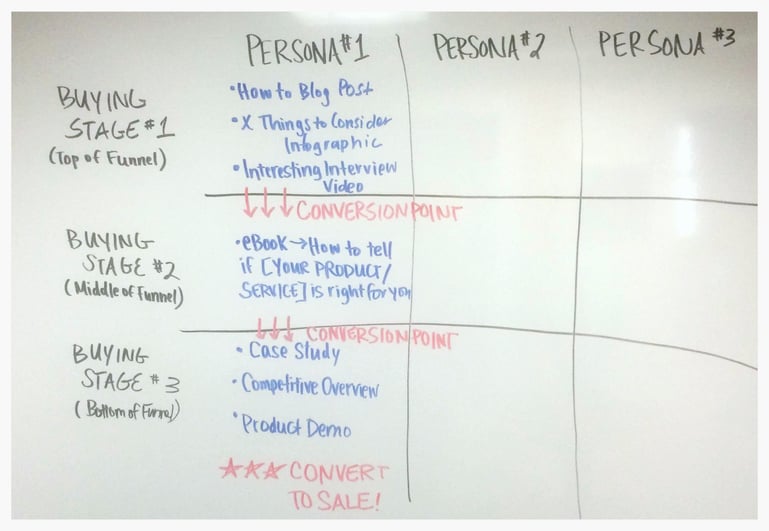 PERSONA #1 PERSONA #2 PERSONA #3
BUYING
STAGE #1
(Top of Funnel)
• How to Blog Post
• X Things to Consider
Infographic
• Interesting Interview
Video
↓↓↓ CONVERSION POINT
BUYING
STAGE #2
(Middle of Funnel)
• eBook → How to tell
if [YOUR PRODUCT/
SERVICE] is right for you
↓↓↓ CONVERSION POINT
BUYING
STAGE #3
(Bottom of Funnel)
• Case Study
• Competitive Overview
• Product Demo
☆☆☆ CONVERT
TO SALE!